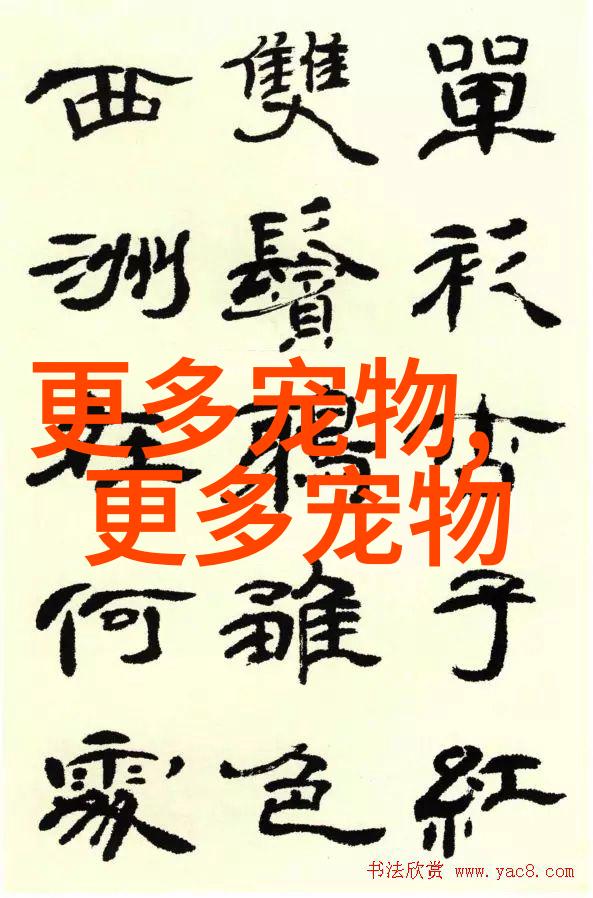 單衫杏子紅
雙鬢雛色
西洲在何處
更多宠物,
更多宠物
书法欣赏 www.yac8.com